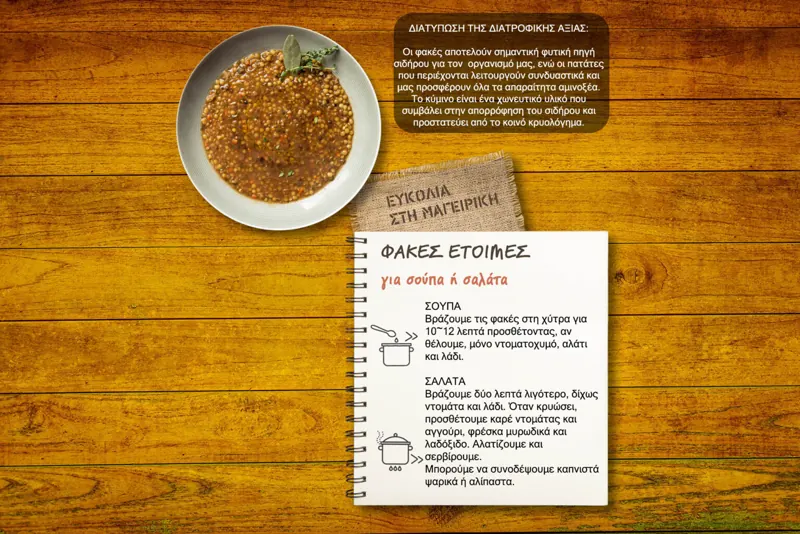 ΔΙΑΤΥΠΩΣΗ ΤΗΣ ΔΙΑΤΡΟΦΙΚΗΣ ΑΞΙΑΣ:
Οι φακές αποτελούν σημαντική φυτική πηγή
σιδήρου για τον οργανισμό μας, ενώ οι πατάτες
που περιέχονται λειτουργούν συνδυαστικά και
μας προσφέρουν όλα τα απαραίτητα αμινοξέα.
Το κύμινο είναι ένα χωνευτικό υλικό που
συμβάλει στην απορρόφηση του σιδήρου και
προστατεύει από το κοινό κρυολόγημα.
ΕΥΚΟΛΙΑ
ΣΤΗ ΜΑΓΕΙΡΙΚΗ
ΦΑΚΕΣ ΕΤΟΙΜΕΣ
για σούπα ή σαλάτα
ΣΟΥΠΑ
Βράζουμε τις φακές στη χύτρα για
10~12 λεπτά προσθέτοντας, αν
θέλουμε, μόνο ντοματοχυμό, αλάτι
και λάδι.
ΣΑΛΑΤΑ
Βράζουμε δύο λεπτά λιγότερο, δίχως
ντομάτα και λάδι. Όταν κρυώσει,
προσθέτουμε καρέ ντομάτας και
αγγούρι, φρέσκα μυρωδικά και
λαδόξιδο. Αλατίζουμε και
σερβίρουμε.
Μπορούμε να συνοδέψουμε καπνιστά
ψαρικά ή αλίπαστα.